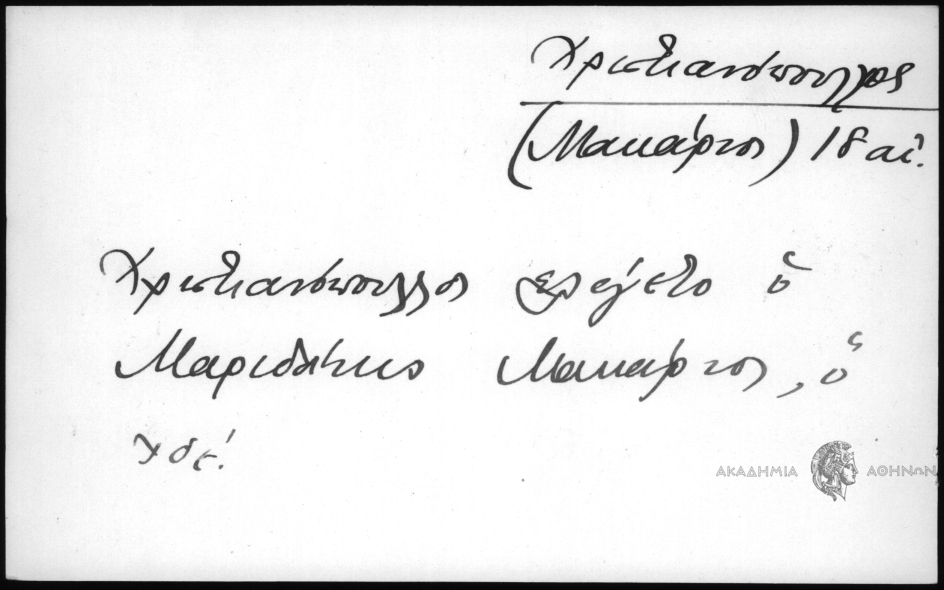 Χριστιανόπουλος
(Μακάριος) 18 αἰ.
Χριστιανόπουλος ἐλέγετο ὁ
Μακάριος, ὁ
ΑΚΑΔΗΜΙΑ ΑΘΗΝΩΝ